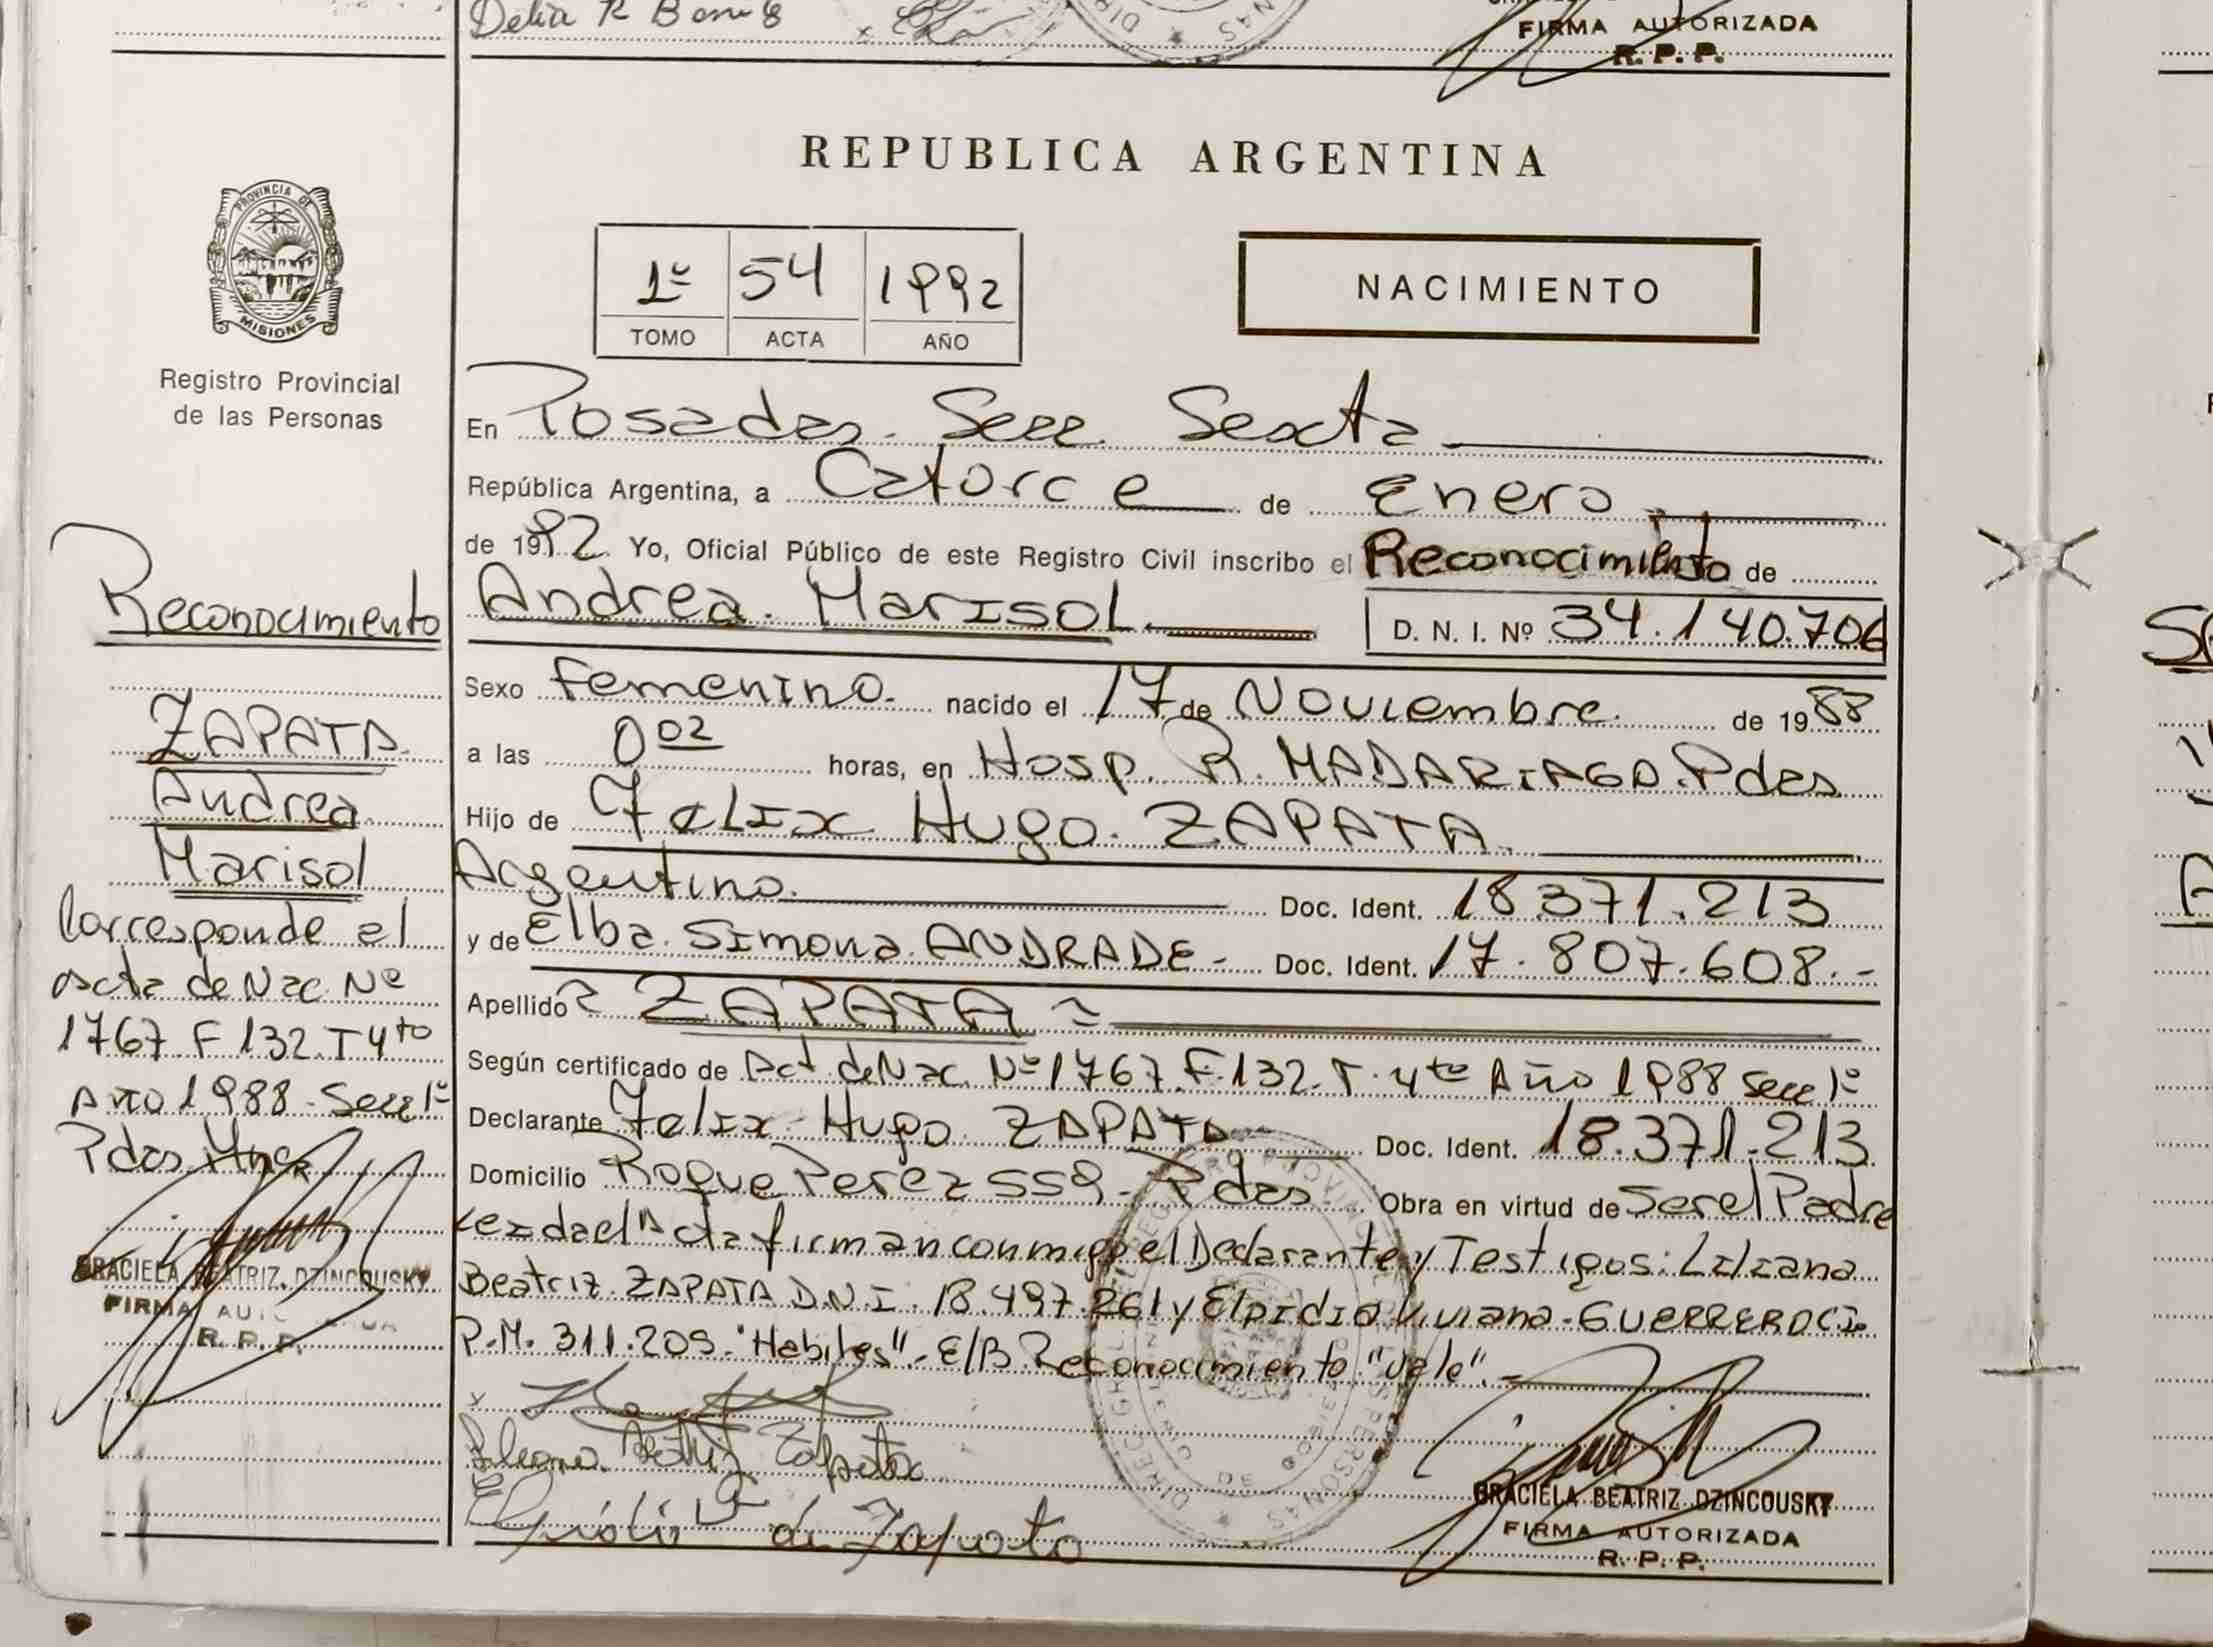 Delia R
FIRMA AUTORIZADA
R. P. P.
REPUBLICA ARGENTINA
PROVINCIA DE
MISIONES
Registro Provincial
de las Personas
1º 54 1992
TOMO ACTA AÑO
NACIMIENTO
En Posadas. Secc. Sexta
República Argentina, a Catorce de Enero
de 1992. Yo, Oficial Público de este Registro Civil inscribo el Reconocimiento de
Andrea. Marisol
D. N. I. Nº 34.140.706
Sexo Femenino. nacido el 17 de Noviembre. de 1988
a las 0 02 horas, en Hosp. R. MADARIAGA. Pdas
Hijo de Felix Hugo. ZAPATA.
Argentino. Doc. Ident. 18.371.213
y de Elba. Simona. ANDRADE- Doc. Ident. 17.807.608.-
Apellido = ZAPATA =
Según certificado de Act. de Nac. Nº 1767. F. 132. T. 4to Año 1988 Secc 1º
Declarante Felix Hugo. ZAPATA Doc. Ident. 18.371.213
Domicilio Roque Perez 559- Pdas. Obra en virtud de Ser el Padre
Leida el Acta firman conmigo el Declarante y Testigos: Liliana
Beatriz. ZAPATA D.N.I. 18.497.261 y Elpidia Viviana. GUERRERO C.I.
P.M. 311.209. "Habiles".- E/B. Reconocimiento. "Vale".-
x
Beatriz Zapata
de Zapata
GRACIELA BEATRIZ DZINCOUSKY
FIRMA AUTORIZADA
R. P. P.
Reconocimiento
ZAPATA.
Andrea.
Marisol
Corresponde al
acta de Nac. Nº
1767. F 132. T 4to
Año 1988. Secc 1º
Pdas. Mnes
GRACIELA BEATRIZ. DZINCOUSKY
FIRMA AU
R. P. P.